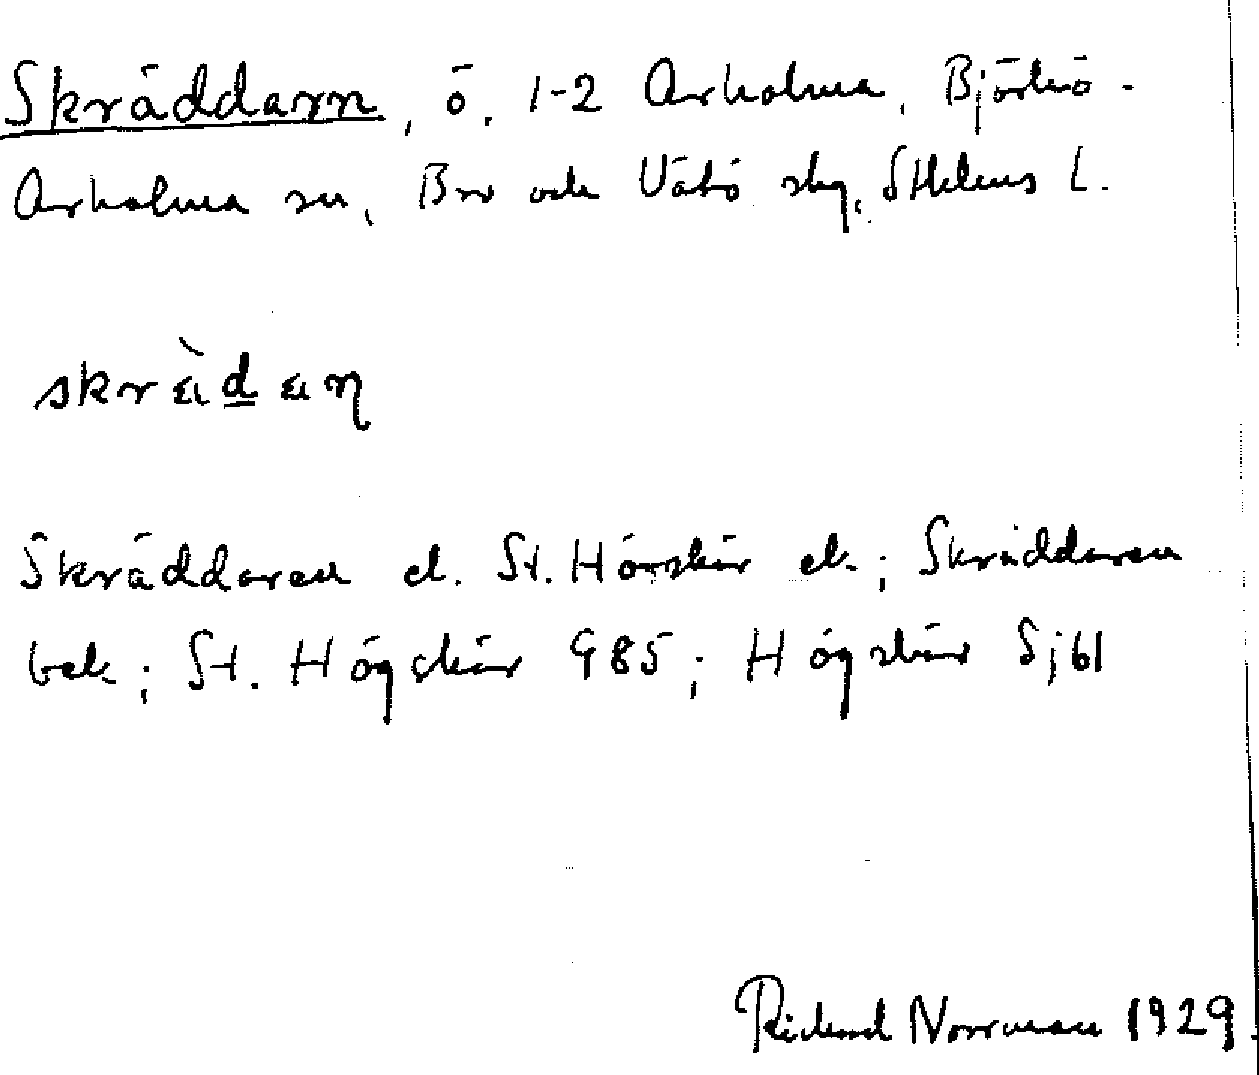 Skräddarn, ö. 1-2 Arholma, Björkö-
Arholma sn, Bro och Vätö skg, Sthlms L.
skrädaɳ
Skräddaren el. St. Högskär ek; Skräddaren
bek; St. Högskär G85; Högskär Sjbl
Rickard Norrman 1929.